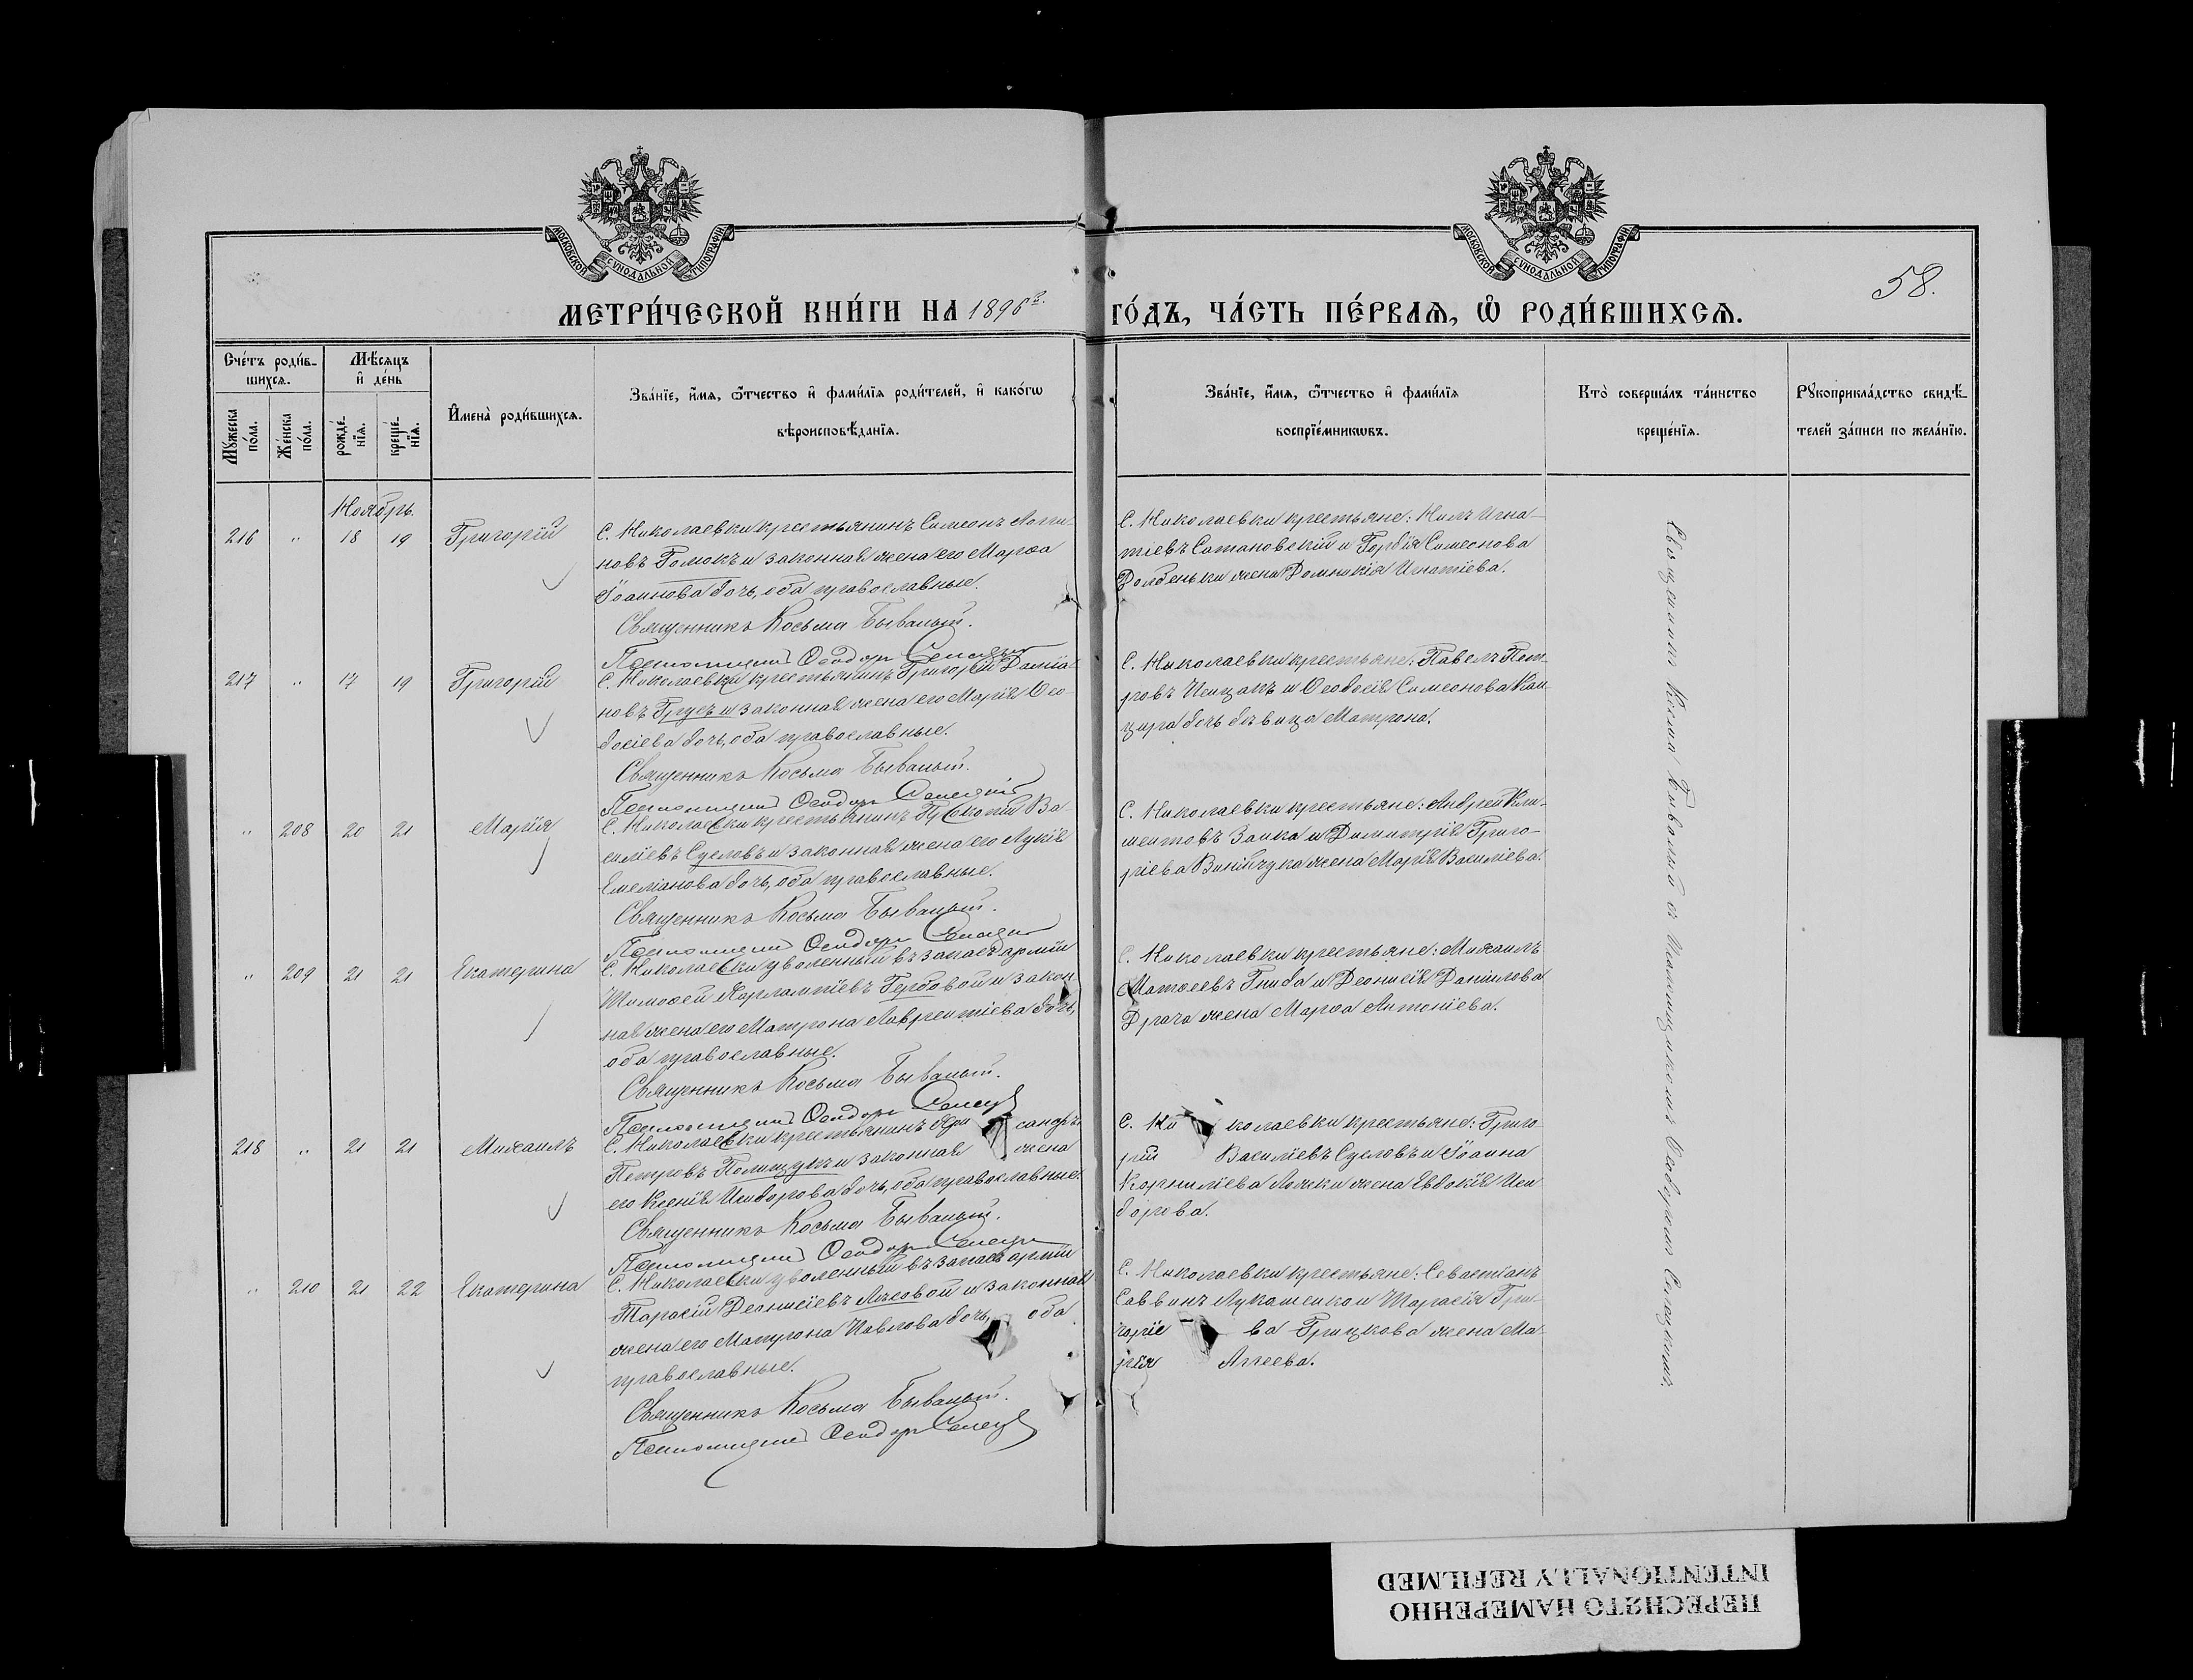 МОСКОВСКОЙ СѴНОДАЛЬНОЙ ТИПОГРАФІИ
МОСКОВСКОЙ СѴНОДАЛЬНОЙ ТИПОГРАФІИ
58.
МЕТРИ́ЧЕСКОЙ КНИ́ГИ НА 1896 г.
ГО́ДЪ, ЧА́СТЬ ПЕ́РВАѦ, Ѡ РОДИ́ВШИХСѦ.
Сче́тъ роди́в-
шихсѧ.
Мѣ́сѧцъ
и де́нь
Мꙋ́жеска по́ла.
Же́нска по́ла.
рожде́-нїѧ.
креще́-нїѧ.
Имена̀ роди́вшихсѧ.
Зва́нїе, и́мѧ, ѻ́тчество и фами́лїѧ роди́телей, и како́гѡ
вѣроисповѣ́данїѧ.
Зва́нїе, и́мѧ, ѻ́тчество и фами́лїѧ
воспрїе́мникѡвъ.
Кто̀ соверша́лъ та́инство
креще́нїѧ.
Рꙋкоприкла́дство свидѣ́-
телей за́писи по жела́нїю.
Ноябрь.
216 " 18 19 Григорій
С. Николаевки крестьянинъ Симеонъ Логи-
новъ Гомокъ и законная жена его Марѳа
Іоаннова дочь, оба православные.
Священникъ Косьма Бывалый.
Ѳеодоръ
С. Николаевки крестьяне: Нилъ Игна-
тіевъ Сатановскій и Гордія Симеонова
Долбеньки жена Домникія Игнатіева.
217 " 17 19 Григорій
С. Николаевки крестьянинъ Григорій Даміа-
новъ Грусъ и законная жена его Марія Ѳео-
досіева дочь, оба православные.
Священникъ Косьма Бывалый.
Ѳеодоръ
С. Николаевки крестьяне: Павелъ Пет-
ровъ Ищакъ и Ѳеодосія Симеонова Кан-
цура дочь дѣвица Матрона.
" 208 20 21 Марія
С. Николаевки крестьянинъ Прокопій Ва-
силіевъ Сусловъ и законная жена его Лукія
Емеліанова дочь, оба православные.
Священникъ Косьма Бывалый.
Ѳеодоръ
С. Николаевки крестьяне: Андрей Кли-
ментовъ Заика и Димитрія Григо-
ріева Винійчука жена Марія Василіева.
" 209 21 21 Екатерина
С. Николаевки уволенный въ запасъ арміи
Тимоѳей Харлампіевъ Гербовой и закон-
ная жена его Матрона Лаврентіева дочь,
оба православные.
Священникъ Косьма Бывалый.
Ѳеодоръ
С. Николаевки крестьяне: Михаилъ
Матѳеевъ Гнида и Діонисія Даніилова
Драча жена Марѳа Антоніева.
218 " 21 21 Михаилъ
С. Николаевки крестьянинъ Хри санфъ
Петровъ Полищукъ и законная жена
его Ксенія Исидорова дочь, оба православные.
Священникъ Косьма Бывалый.
Ѳеодоръ
С. Ни колаевки крестьяне: Григо-
рій Василіевъ Сусловъ и Іоанна
Корниліева Ложки жена Евдокія Иси-
дорова.
" 210 21 22 Екатерина
С. Николаевки уволенный въ запасъ арміи
Тарасій Діонисіевъ Лѣсовой и законная
жена его Матрона Павлова дочь, оба
православные.
Священникъ Косьма Бывалый.
Ѳеодоръ
С. Николаевки крестьяне: Севастіанъ
Саввинъ Лукашенко и Тарасія Гри-
горіе ва Грицкова жена Ма-
рія Аггеева.
Священникъ Косма Бывалый съ Псаломщикомъ Ѳеодоромъ
ПЕРЕСНЯТО НАМЕРЕННО
INTENTIONALLY REFILMED